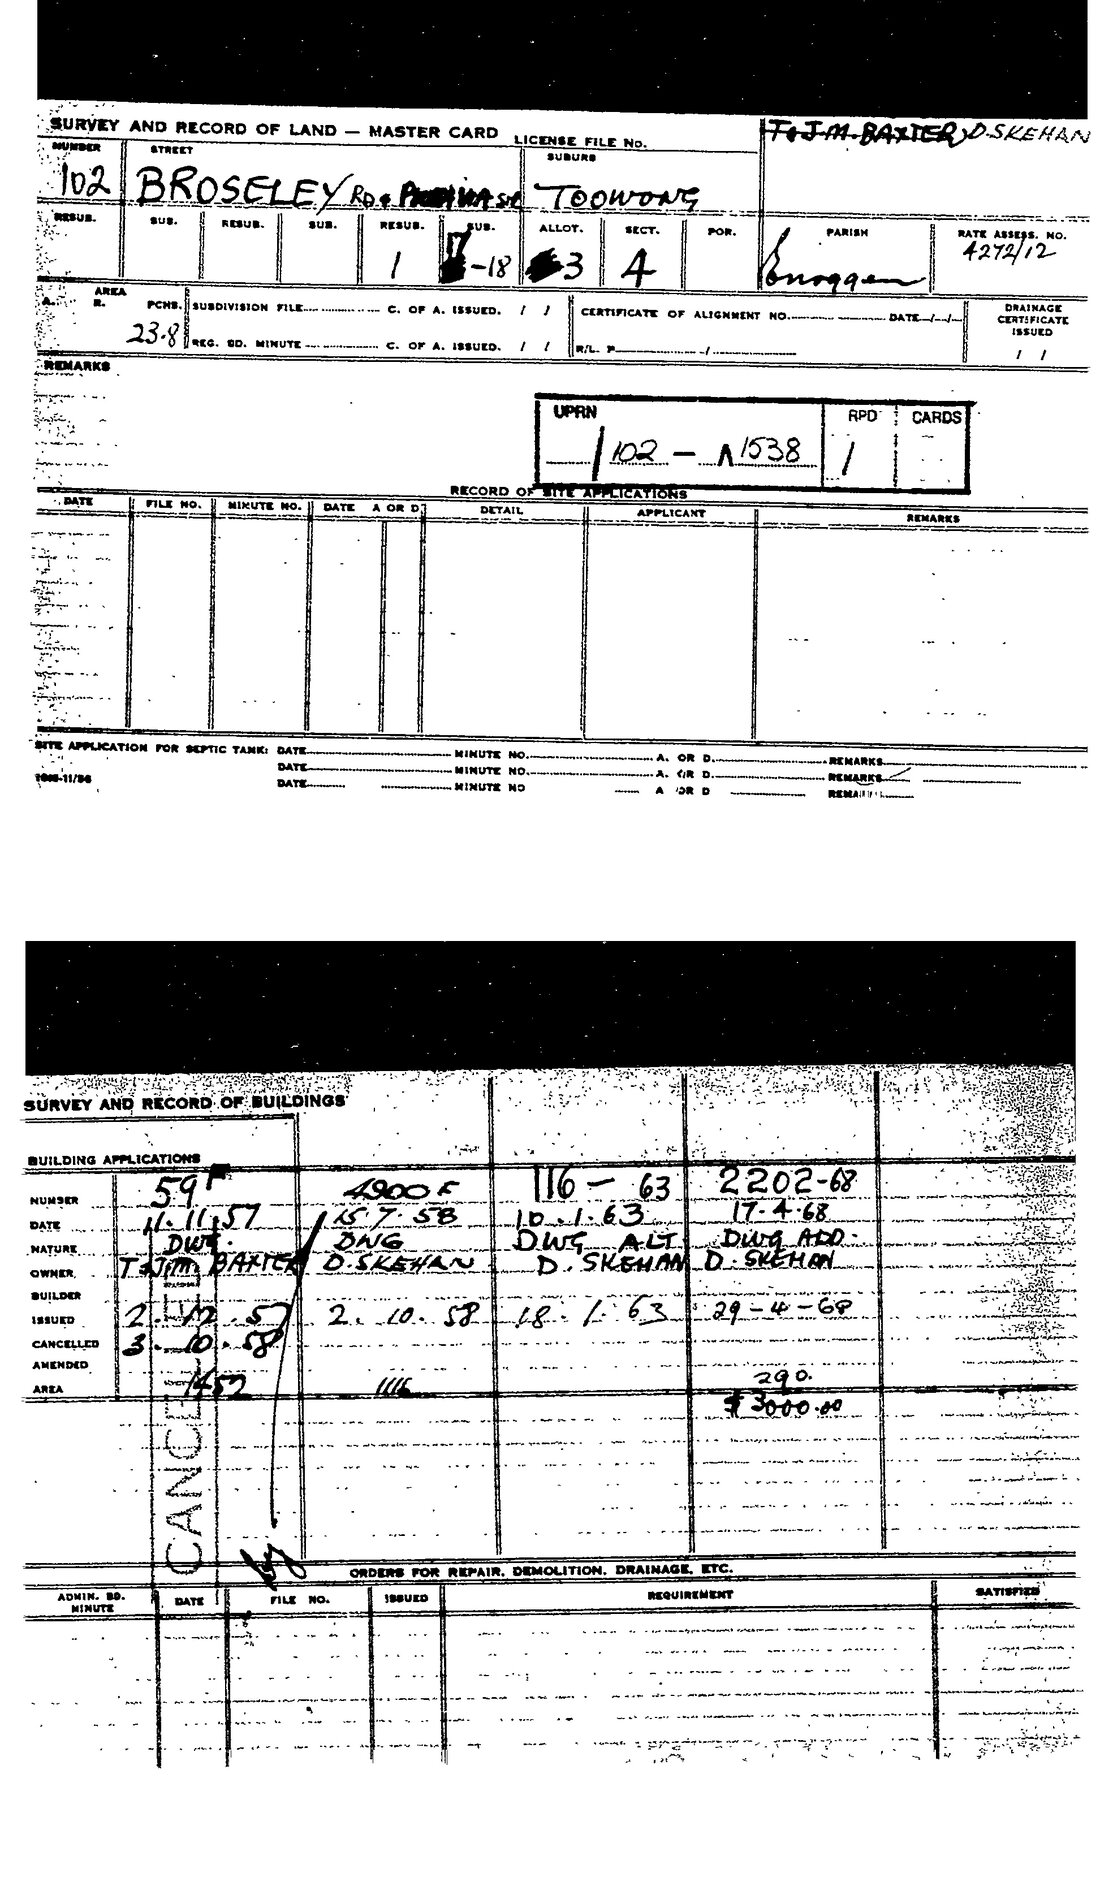 SURVEY AND RECORD OF LAND — MASTER CARD
LICENSE FILE No.
T & J.M. BAXTER D. SKEHAN
NUMBER STREET SUBURB
102 BROSELEY RD & TOOWONG
RESUB. SUB. RESUB. SUB. RESUB. SUB. ALLOT. SECT. POR. PARISH RATE ASSESS. NO.
1 17 -18 3 4 Enoggera 4272/12
A. AREA R. PCHS. SUBDIVISION FILE C. OF A. ISSUED. / / CERTIFICATE OF ALIGNMENT NO. DATE / / DRAINAGE CERTIFICATE ISSUED
23.8 REG. BD. MINUTE C. OF A. ISSUED. / / R/L. P / / /
REMARKS
UPRN RPD CARDS
/ 102 — ∧ 1538 1
RECORD OF SITE APPLICATIONS
DATE FILE NO. MINUTE NO. DATE A OR D DETAIL APPLICANT REMARKS
SITE APPLICATION FOR SEPTIC TANK: DATE MINUTE NO. A. OR D. REMARKS
DATE MINUTE NO. A. OR D. REMARKS
DATE MINUTE NO A OR D REMARKS
SURVEY AND RECORD OF BUILDINGS
BUILDING APPLICATIONS
NUMBER 59 F 4900 F 116 — 63 2202-68
DATE 11.11.57 15.7.58 10.1.63 17.4.68
NATURE DWG. DWG DWG ALT DWG ADD.
OWNER T & J.M. BAXTER D. SKEHAN D. SKEHAN D. SKEHAN
BUILDER
ISSUED 2.12.57 2.10.58 18.1.63 29-4-68
CANCELLED 3.10.58
AMENDED
AREA 1457 1116 290.
$3000.00
CANCELLED
ORDERS FOR REPAIR, DEMOLITION, DRAINAGE, ETC.
ADMIN. BD. MINUTE DATE FILE NO. ISSUED REQUIREMENT SATISFIED